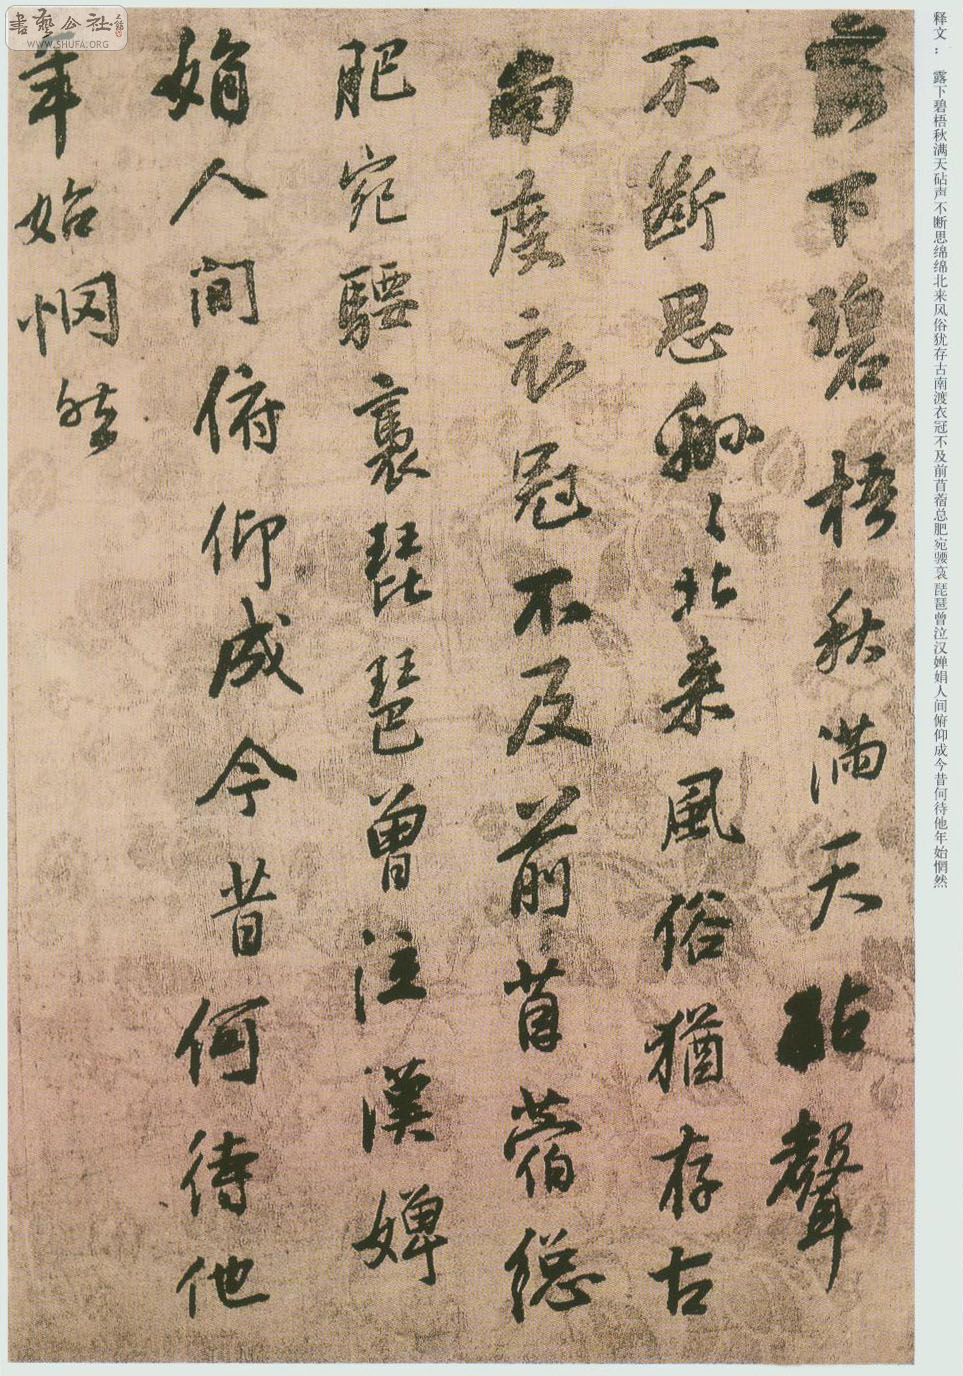 露下碧梧秋满天砧聲
不斷思綿〻北来風俗猶存古
南度衣冠不及前苜蓿總
肥宛騕褭琵琶曾泣漢嬋
娟人間俯仰成今昔何待他
年始惘然
释文：露下碧梧秋满天砧声不断思绵绵北来风俗犹存古南渡衣冠不及前苜蓿总肥宛骙袅琵琶曾泣汉婵娟人间俯仰成今昔何待他年始惘然
書藝公社
WWW.SHUFA.ORG